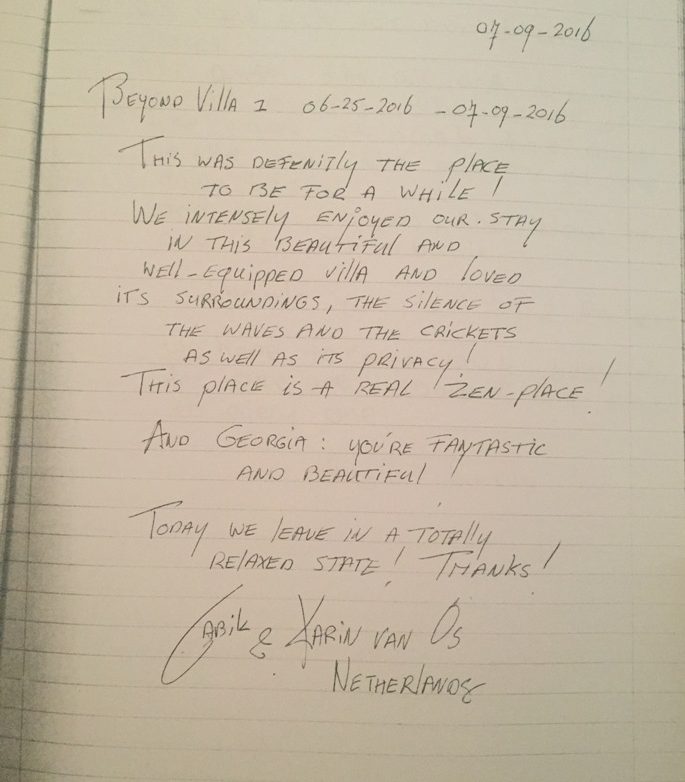 07-09-2016
BEYOND VILLA 1 06-25-2016 - 07-09-2016
THIS WAS DEFENITLY THE PLACE
TO BE FOR A WHILE!
WE INTENSELY ENJOYED OUR STAY
IN THIS BEAUTIFUL AND
WELL-EQUIPPED VILLA AND LOVED
ITS SURROUNDINGS, THE SILENCE OF
THE WAVES AND THE CRICKETS
AS WELL AS ITS PRIVACY!
THIS PLACE IS A REAL ZEN-PLACE!
AND GEORGIA: YOU'RE FANTASTIC
AND BEAUTIFUL!
TODAY WE LEAVE IN A TOTALLY
RELAXED STATE! THANKS!
& KARIN VAN OS
NETHERLANDS